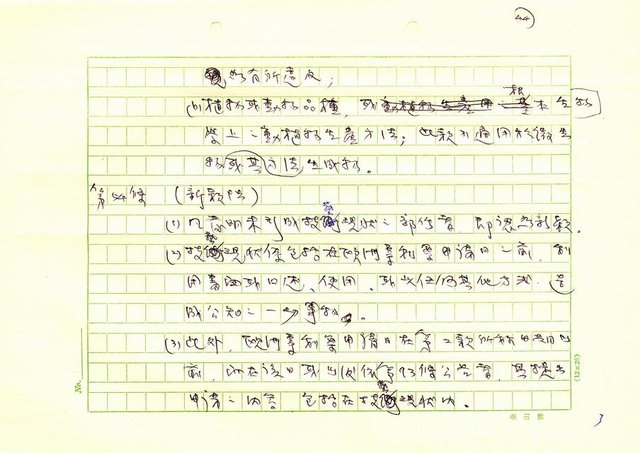 44
如有所違反;
(b)植物或動物品種, 或動植物生產用基根本生物
學上之動植物生產方法; 此款不適用於微生
物或其方法生成物。
第54條 (新穎性)
(1) 凡發明未形成技藝現狀之部份者 即認為新穎。
(2) 技藝現狀係包括在歐洲專利案申請日之前, 利
用書面或口述, 使用, 或以任何其他方式, 當
成公知之一切事物。
(3) 此外, 歐洲專利案申請日在第二款所稱日期之
前, 而在該日或此後依第93條公告者, 其提出
申請之內容 包括在技藝現狀內。
No.
(12×25)
3